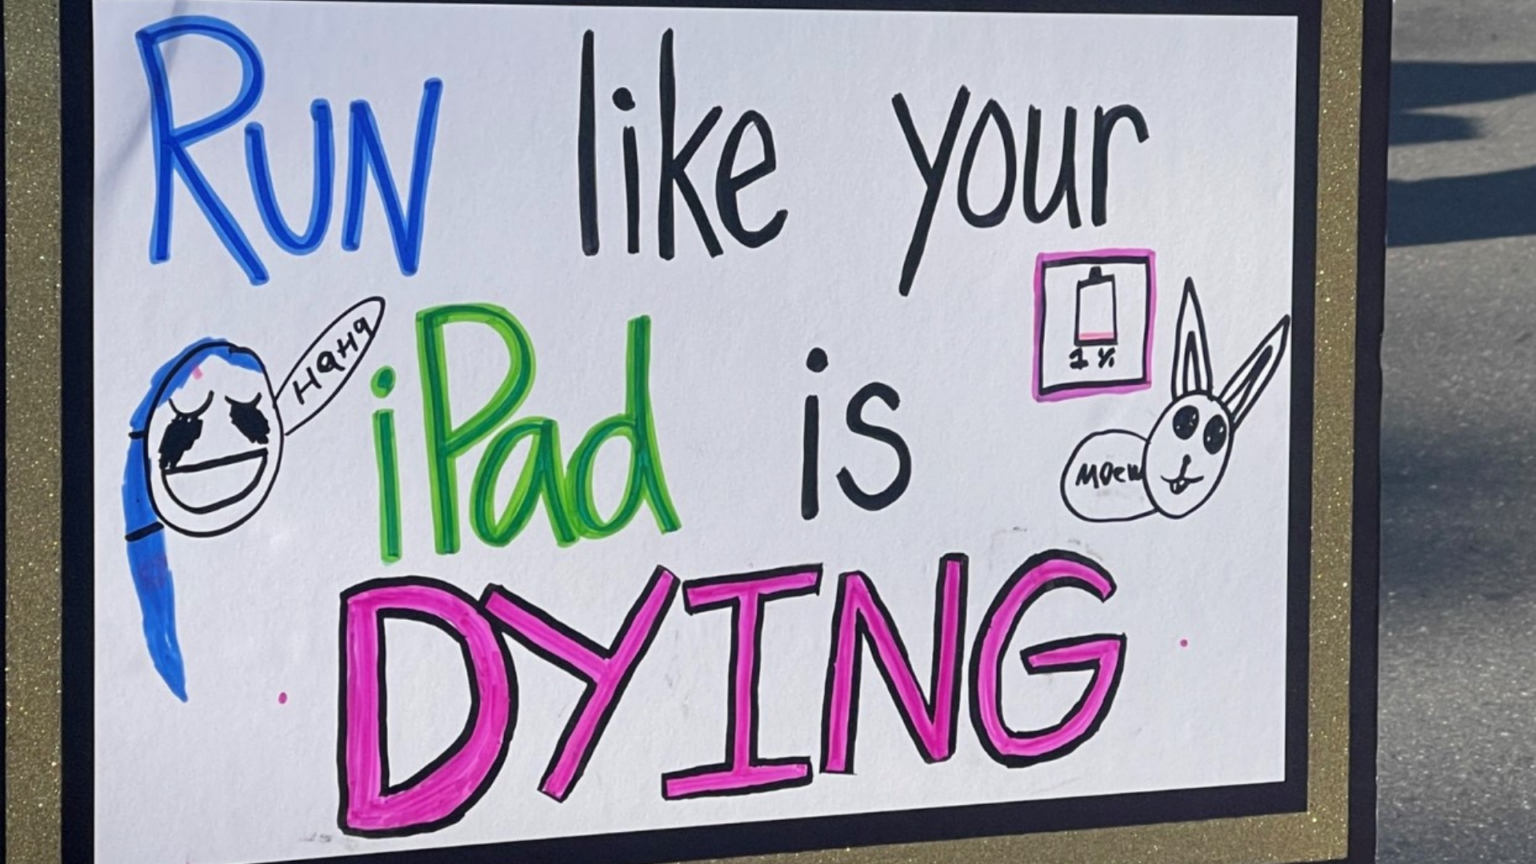 RUN like your
1 %
HaHa
iPad is
Moew
DYING